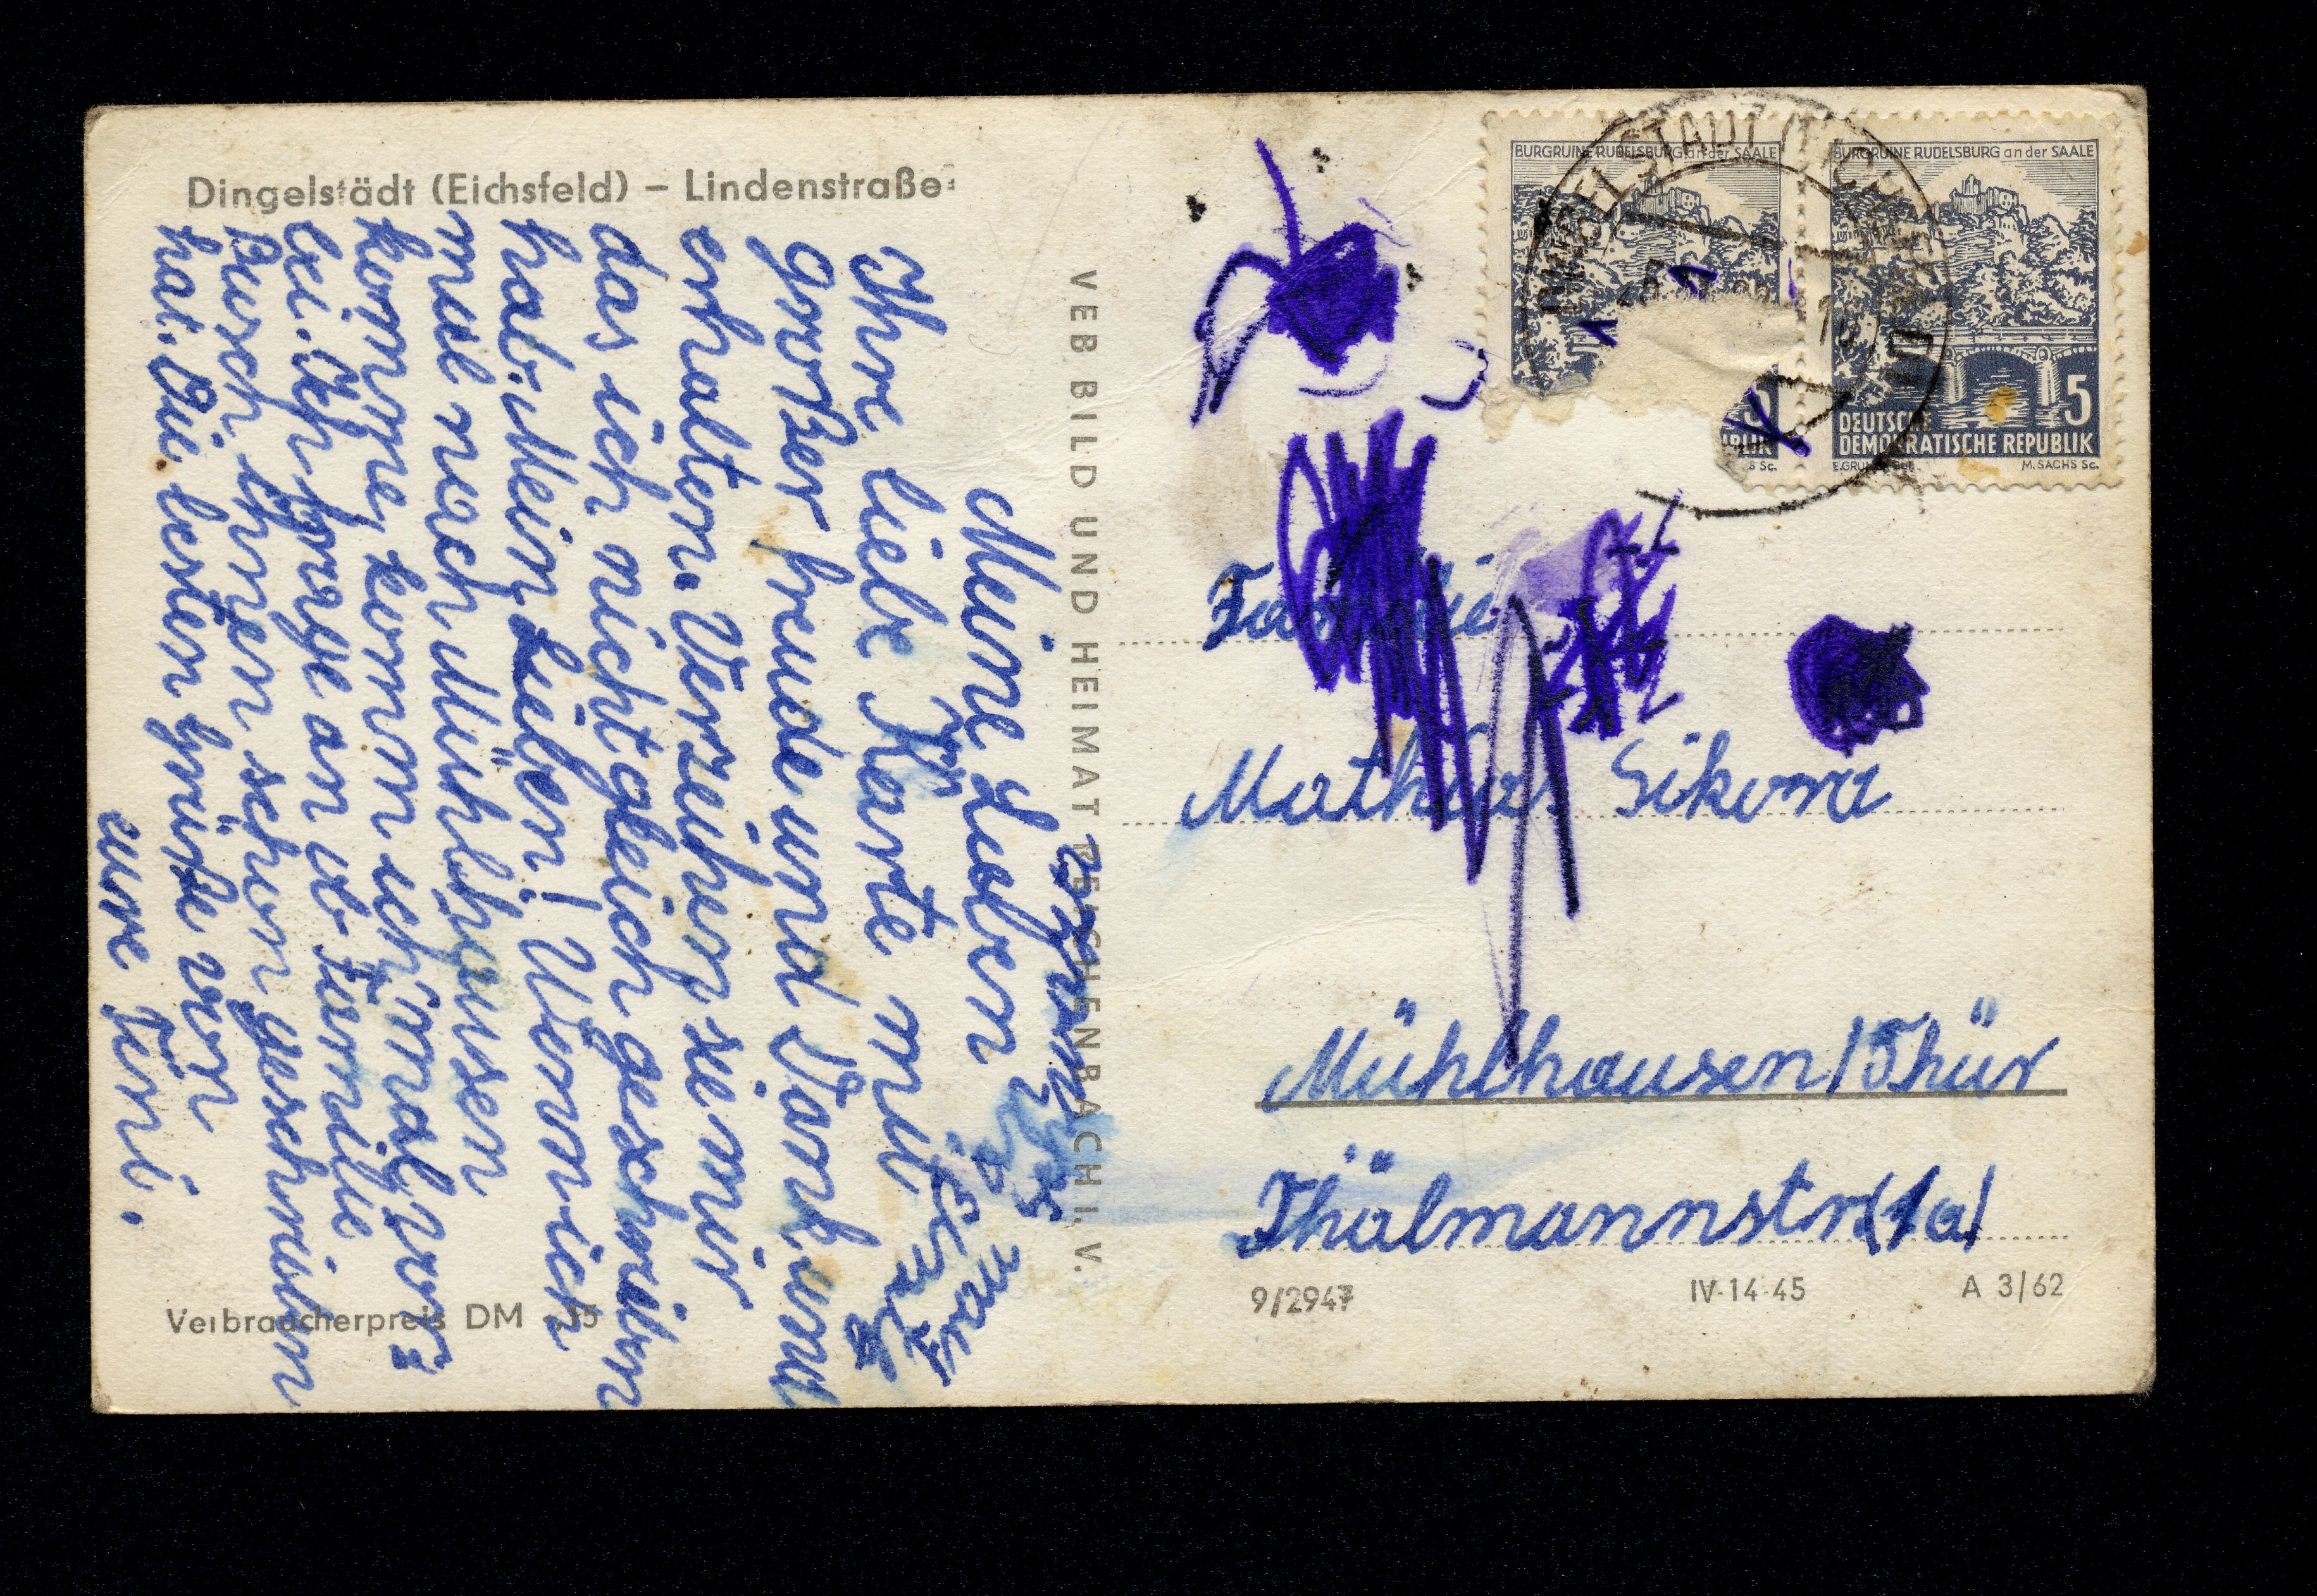 Dingelstädt (Eichsfeld) – Lindenstraße
Meine Lieben
Ihre liebe Karte mit
großer freude und Dank und
erhalten. Verzeihen sie mir
das ich nicht gleich geschriben
hab. Mein Lieben! Wenn ich
mal nach Mühlhausen
komme, komm ich mal vor=
bei. Ich frage an ob Familie
Bursch ihnen schon geschriben
hat. Die besten grüße von
eure Feri.
Verbraucherpreis DM -,15
VEB BILD UND HEIMAT REICHENBACH I. V.
BURGRUINE RUDELSBURG an der SAALE
5
BLIK
S Sc.
BURGRUINE RUDELSBURG an der SAALE
5
DEUTSCHE
DEMOKRATISCHE REPUBLIK
M. SACHS Sc.
DINGELSTÄDT (EICHSFELD)
Familie
Mathias Sikora
Mühlhausen/Thür
Thälmannstr(1a)
9/2947
IV-14-45
A 3/62